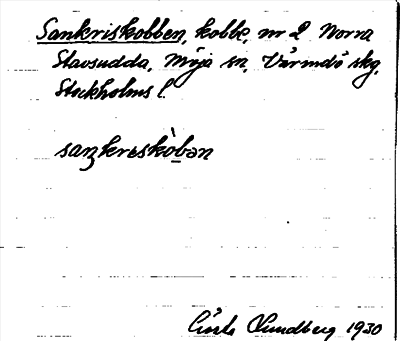 Sankriskobben, kobbe, nr 2 Norra
Stavsudda, Möja sn, Värmdö skg,
Stockholms l.
saŋkrɩskò̱bən
Gösta Sundberg 1930